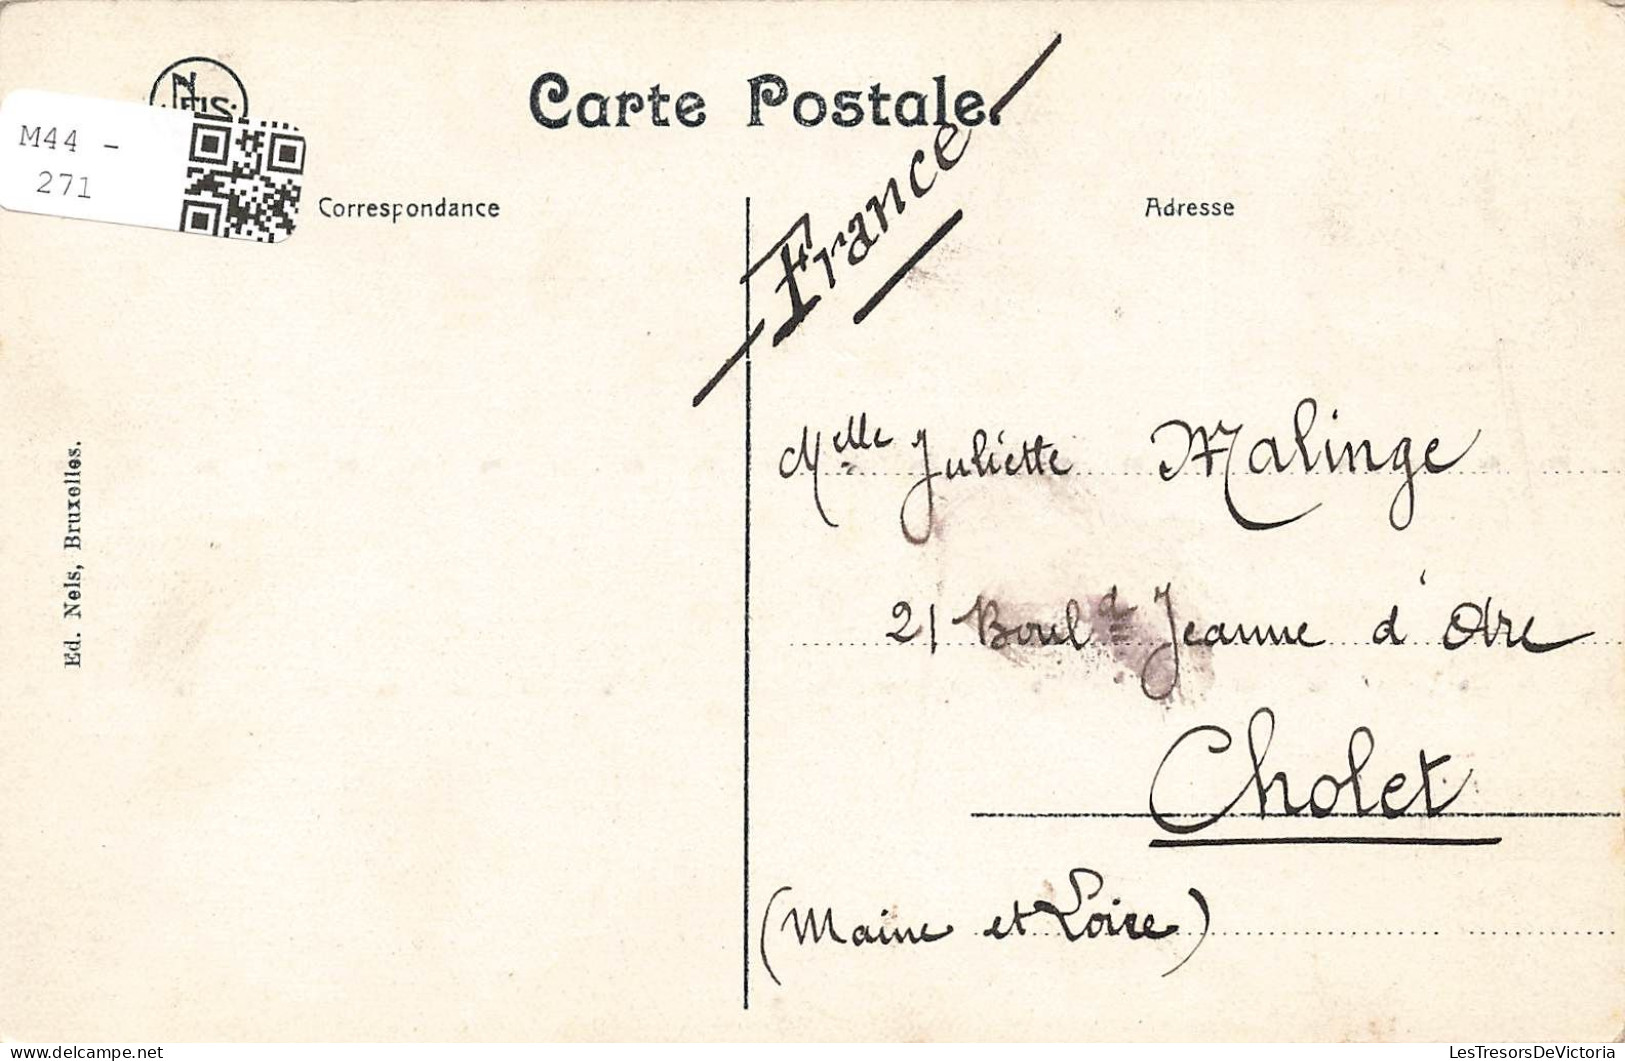 NELS
Carte Postale.
M44 -
271
Correspondance
Adresse
France
Melle Juliette Malinge
21 Boul d Jeanne d'Arc
Cholet
(Maine et Loire)
Ed. Nels, Bruxelles.
delcampe.net
LesTresorsDeVictoria